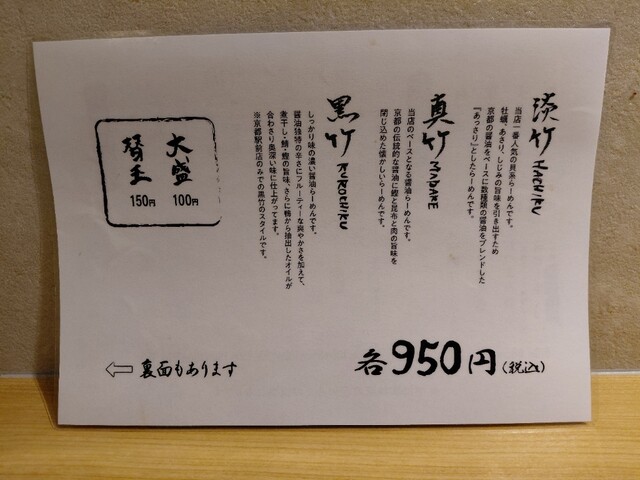 淡竹 HACHIKU
当店一番人気の貝系らーめんです。
牡蠣、あさり、しじみの旨味を引き出すため
京都の醤油をベースに数種類の醤油をブレンドした
『あっさり』としたらーめんです。
真竹 MADAKE
当店のベースとなる醤油らーめんです。
京都の伝統的な醤油に鰹と昆布と肉の旨味を
閉じ込めた懐かしいらーめんです。
黒竹 KUROCHIKU
しっかり味の濃い醤油らーめんです。
醤油独特の辛さにフルーティーな爽やかさを加えて、
煮干し・鯖・鰹の旨味、さらに鶏から抽出したオイルが
合わさり奥深い味に仕上がってます。
※京都駅前店のみでの黒竹のスタイルです。
大盛 100円
替玉 150円
各950円(税込)
⇦ 裏面もあります